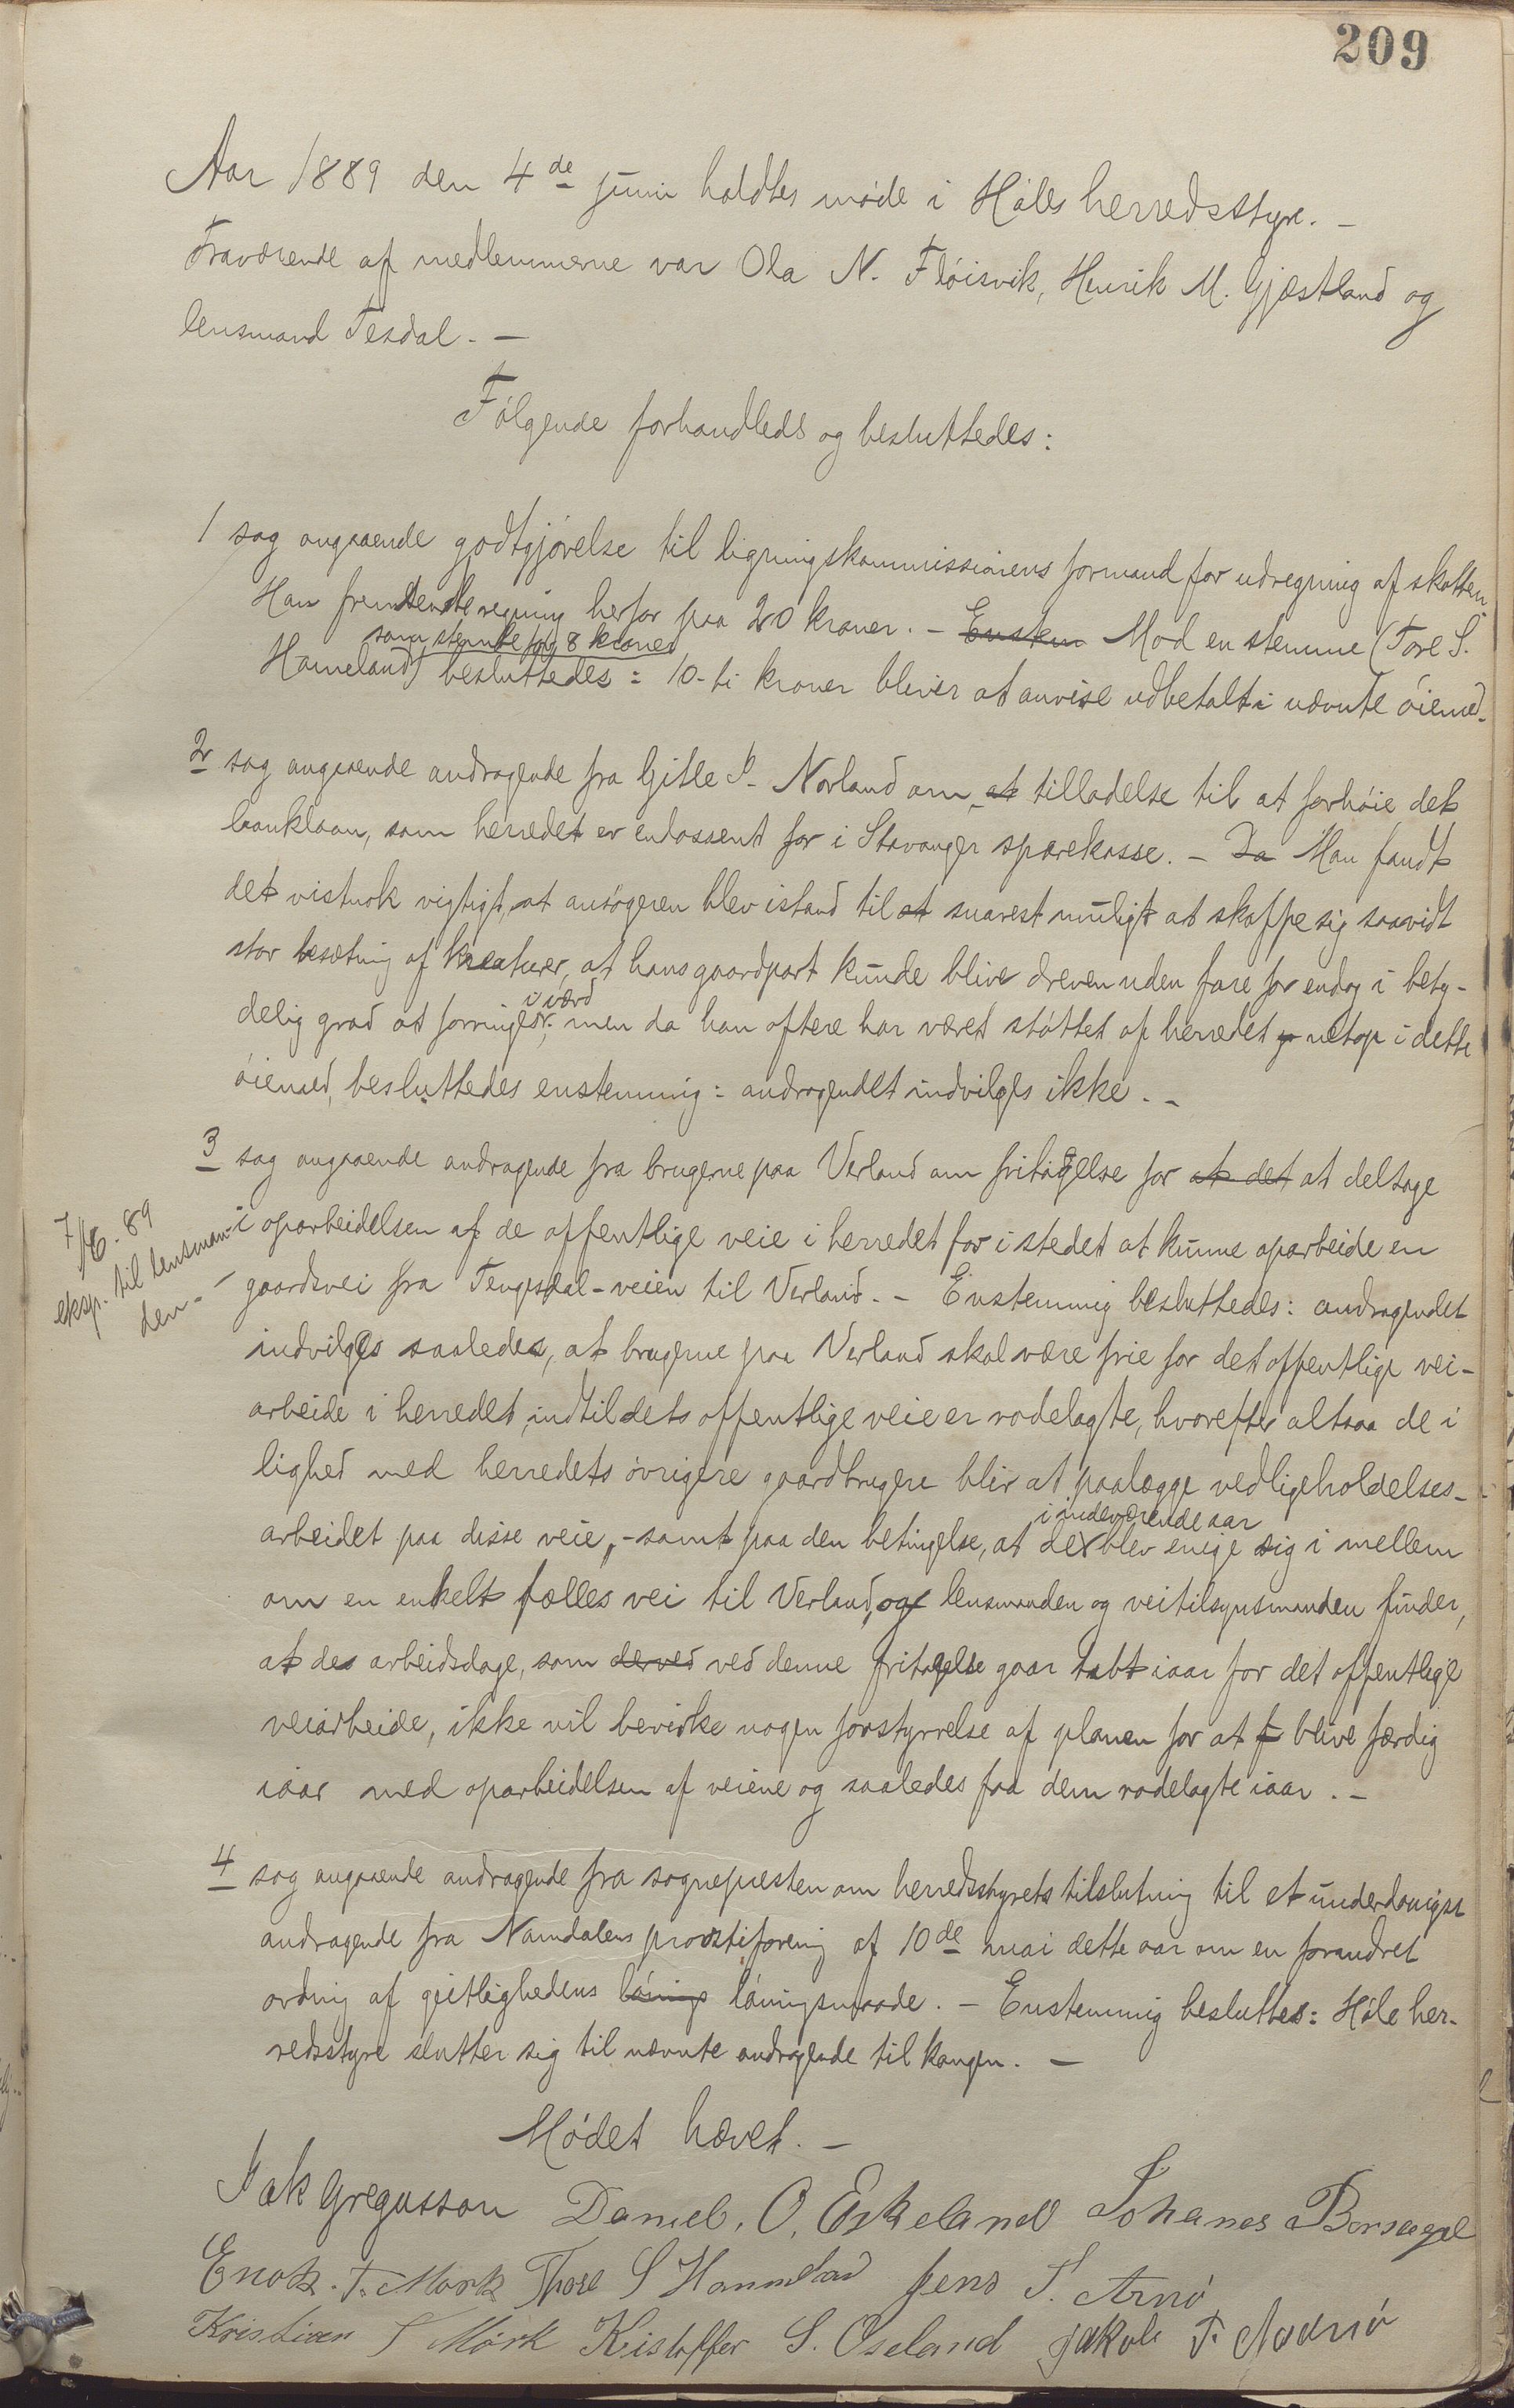 209
Aar 1889 den 4de juni holdtes møde i Høles herredsstyre. –
Fraværende af medlemmerne var Ola N. Fløisvik, Henrik M. Gjæstland og
lensmand Tesdal. –
Følgende forhandleds og besluttedes:
1 sag angaaende godtgjørelse til ligningskommissionens formand for udregning af skatten.
Han fremsendte regning herfor paa 20 kroner. – Enstem Mod en stemme (Tore S.
som stemte for 8 kroner
Hameland) besluttedes: 10-ti kroner bliver at anvise udbetalt i nævnte øiemed.
2 sag angaaende andragende fra Gitle P. Norland om at tilladelse til at forhøie det
banklaan, som herredet er endossent for i Stavanger sparekasse. – Da Man fandt
det vistnok vigtigt, at ansøgeren blev istand til at snarest muligt at skaffe sig saavidt
stor besætning af kreaturer, at hans gaardpart kunde blive dreven uden fare for endog i bety-
i værd
delig grad at forringes; men da han oftere har været støttet af herredet netop i dette
øiemed, besluttedes enstemmig: andragendet indvilges ikke. –
3 sag angaaende andragende fra brugerne paa Verland om fritagelse for at det at deltage
i oparbeidelsen af de offentlige veie i herredet for i stedet at kunne oparbeide en
gaardsvei fra Tengesdal-veien til Verland. – Enstemmig besluttedes: andragendet
indvilges saaledes, at brugerne paa Verland skal være frie for det offentlige vei-
arbeide i herredet, indtil dets offentlige veie er rodelagte, hvorefter altsaa de i
lighed med herredets øvrigere gaardbrugere blir at paalægge vedligeholdelses-
arbeidet paa disse veie, – samt paa den betingelse, at de blev enige sig i mellem
i indeværende aar
om en enkelt fælles vei til Verland, og lensmanden og veitilsynsmanden finder,
at des arbeidsdage, som derved ved denne fritagelse gaar tabt iaar for det offentlige
veiarbeide, ikke vil bevirke nogen forstyrrelse af planen for at f blive færdig
iaar med oparbeidelsen af veiene og saaledes faa dem rodelagte iaar. –
7/6. 89
eksp. til lensman-
den. –
4 sag angaaende andragende fra sognepresten om herredsstyrets tilslutning til et underdanigst
andragende fra Namdalens prostiforening af 10de mai dette aar om en forandret
ordning af geitlighedens lønings lønningsmaade. – Enstemmig besluttes: Høle her-
redsstyre slutter sig til nævnte andragende til kongen. –
Mødet hævet. –
Jak Gregusson Daniel. O. Eskeland Johanes Bersagel
Enok. T. Mørk Thore S Hammeland Jens T. Arnø
Kristian S Mørk Kristoffer S. Oseland Jakob T.